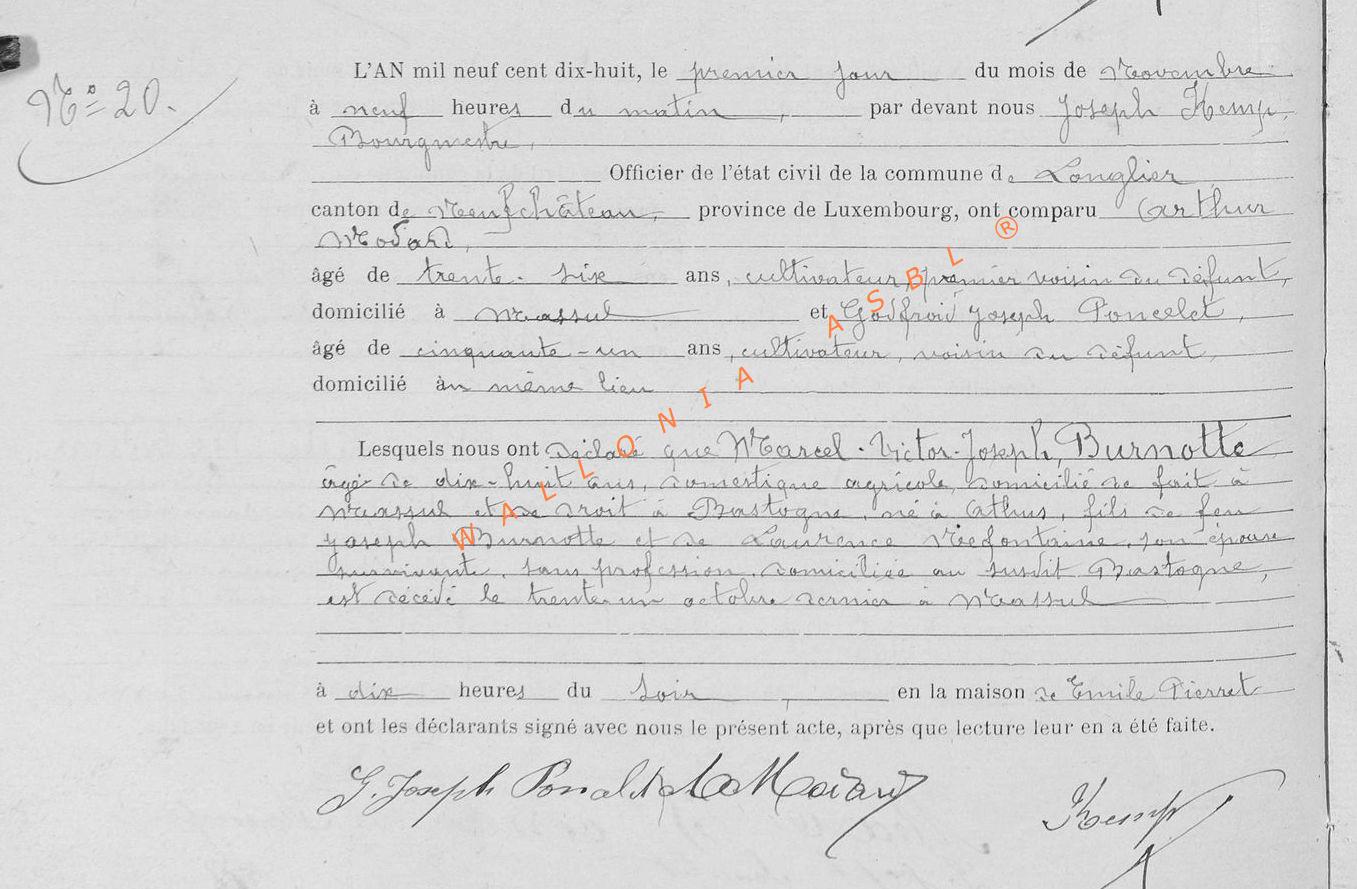 Nº 20.
L'AN mil neuf cent dix-huit, le premier jour du mois de Novembre
à neuf heures du matin, par devant nous Joseph Kemp,
Bourgmestre,
Officier de l'état civil de la commune de Longlier
canton de Neufchâteau, province de Luxembourg, ont comparu Arthur
Modard,
âgé de trente-six ans, cultivateur, premier voisin du défunt,
domicilié à Massul et Godfroid Joseph Poncelet,
âgé de cinquante-un ans, cultivateur, voisin du défunt,
domicilié au même lieu
Lesquels nous ont déclaré que Marcel-Victor-Joseph Burnotte
âgé de dix-huit ans, domestique agricole, domicilié de fait à
Massul et de droit à Bastogne, né à Athus, fils de feu
Joseph Burnotte et de Laurence Neefontaine, son épouse
survivante, sans profession, domiciliée au susdit Bastogne,
est décédé le trente-un octobre dernier à Massul
à dix heures du soir, en la maison de Emile Pierret
et ont les déclarants signé avec nous le présent acte, après que lecture leur en a été faite.
G. Joseph Kemp
WALLONIA ASBL ®